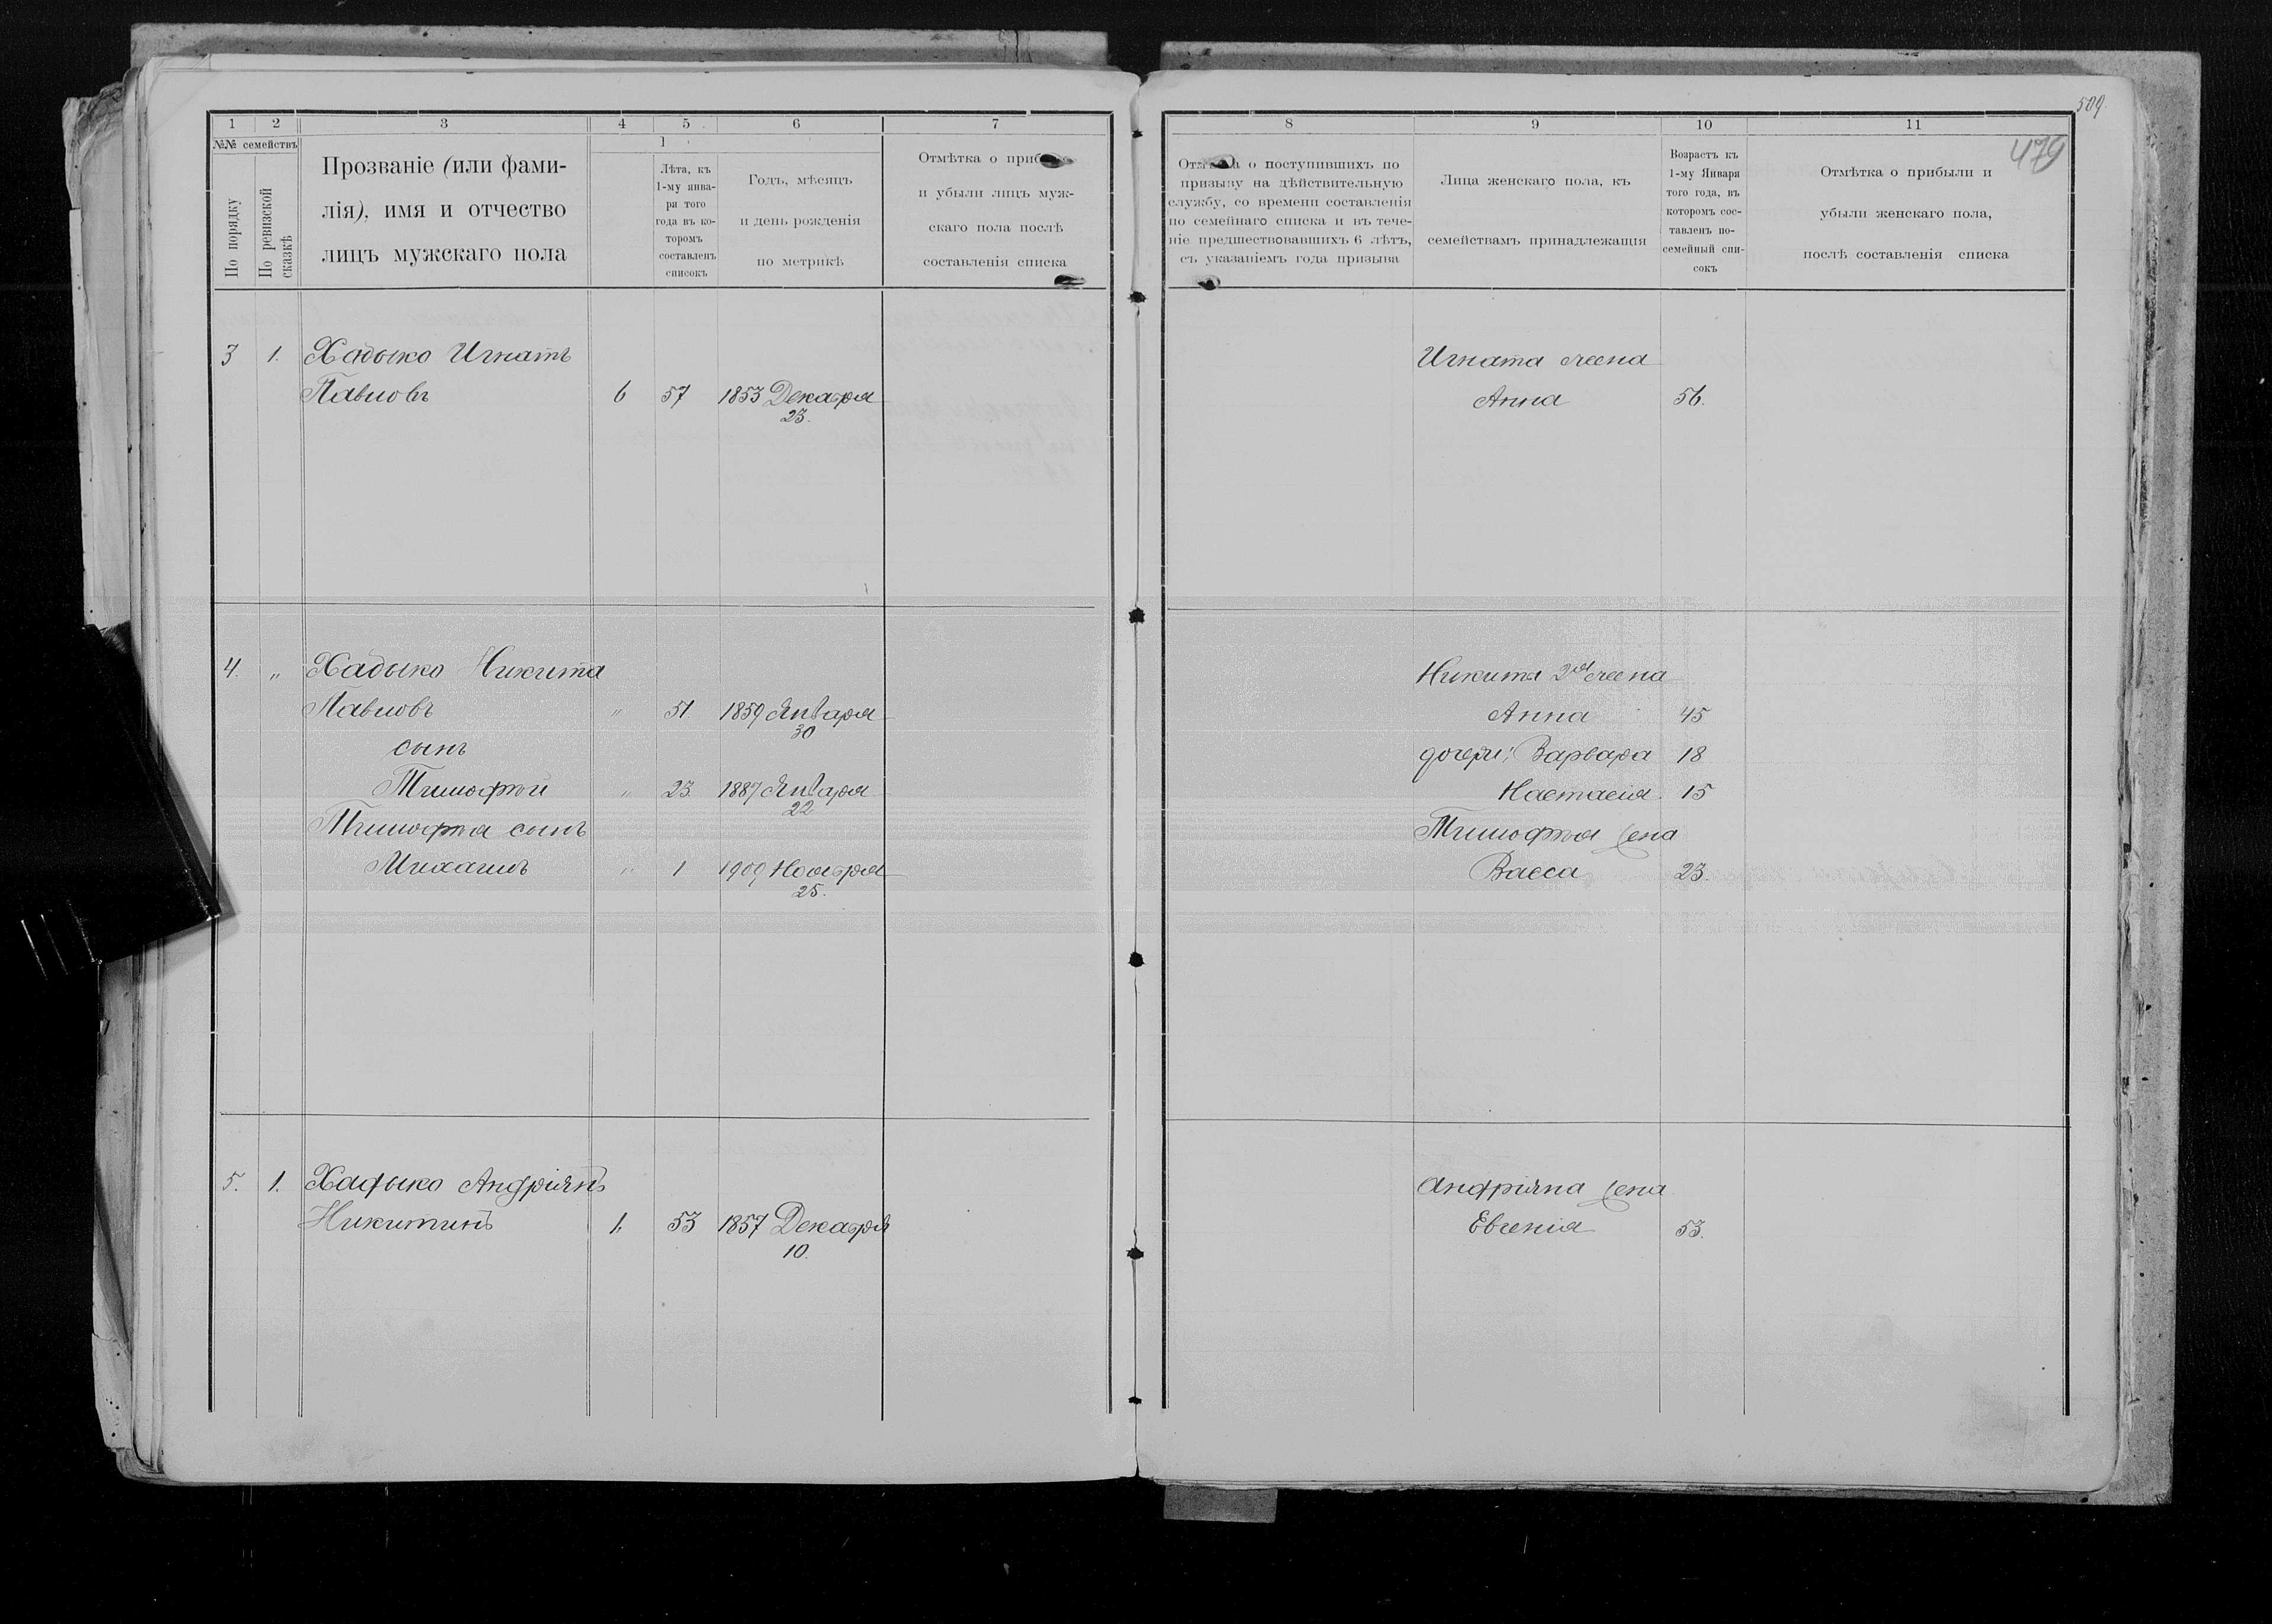 509
479
1 2 3 4 5 6 7
№№ семействъ
По порядку
По ревизской сказкѣ
Прозваніе (или фами-
лія), имя и отчество
лицъ мужскаго пола
Лѣта, къ
1-му янва-
ря того
года въ ко-
торомъ
составленъ
списокъ
Годъ, мѣсяцъ
и день рожденія
по метрикѣ
Отмѣтка о
и убыли лицъ муж-
скаго пола послѣ
составленія списка
8 9 10 11
Отмѣтка о поступившихъ по
призыву на дѣйствительную
службу, со времени составленія
по семейнаго списка и въ тече-
ніе предшествовавшихъ 6 лѣтъ,
съ указаніемъ года призыва
Лица женскаго пола, къ
семействамъ принадлежащія
Возрастъ къ
1-му Января
того года, въ
которомъ сос-
тавленъ по-
семейный спи-
сокъ
Отмѣтка о прибыли и
убыли женскаго пола,
послѣ составленія списка
3 1. Хадыко Игнатъ
Павловъ 6 57 1853 Декабря
23.
Игната жена
Анна 56.
4. " Хадыко Никита
Павловъ " 51. 1859 Января
30
сынъ
Тимофѣй " 23. 1887 Января
22
Тимофѣя сынъ
Михаилъ " 1 1909 Ноября
25.
Никита 2ая жена
Анна 45
дочери: Варвара 18
Настасія. 15
Тимофѣя жена
Васса 23.
5. 1. Хадыко Андріянъ
Никитинъ 1. 53 1857 Декабря
10.
Андріяна жена
Евгенія 53.